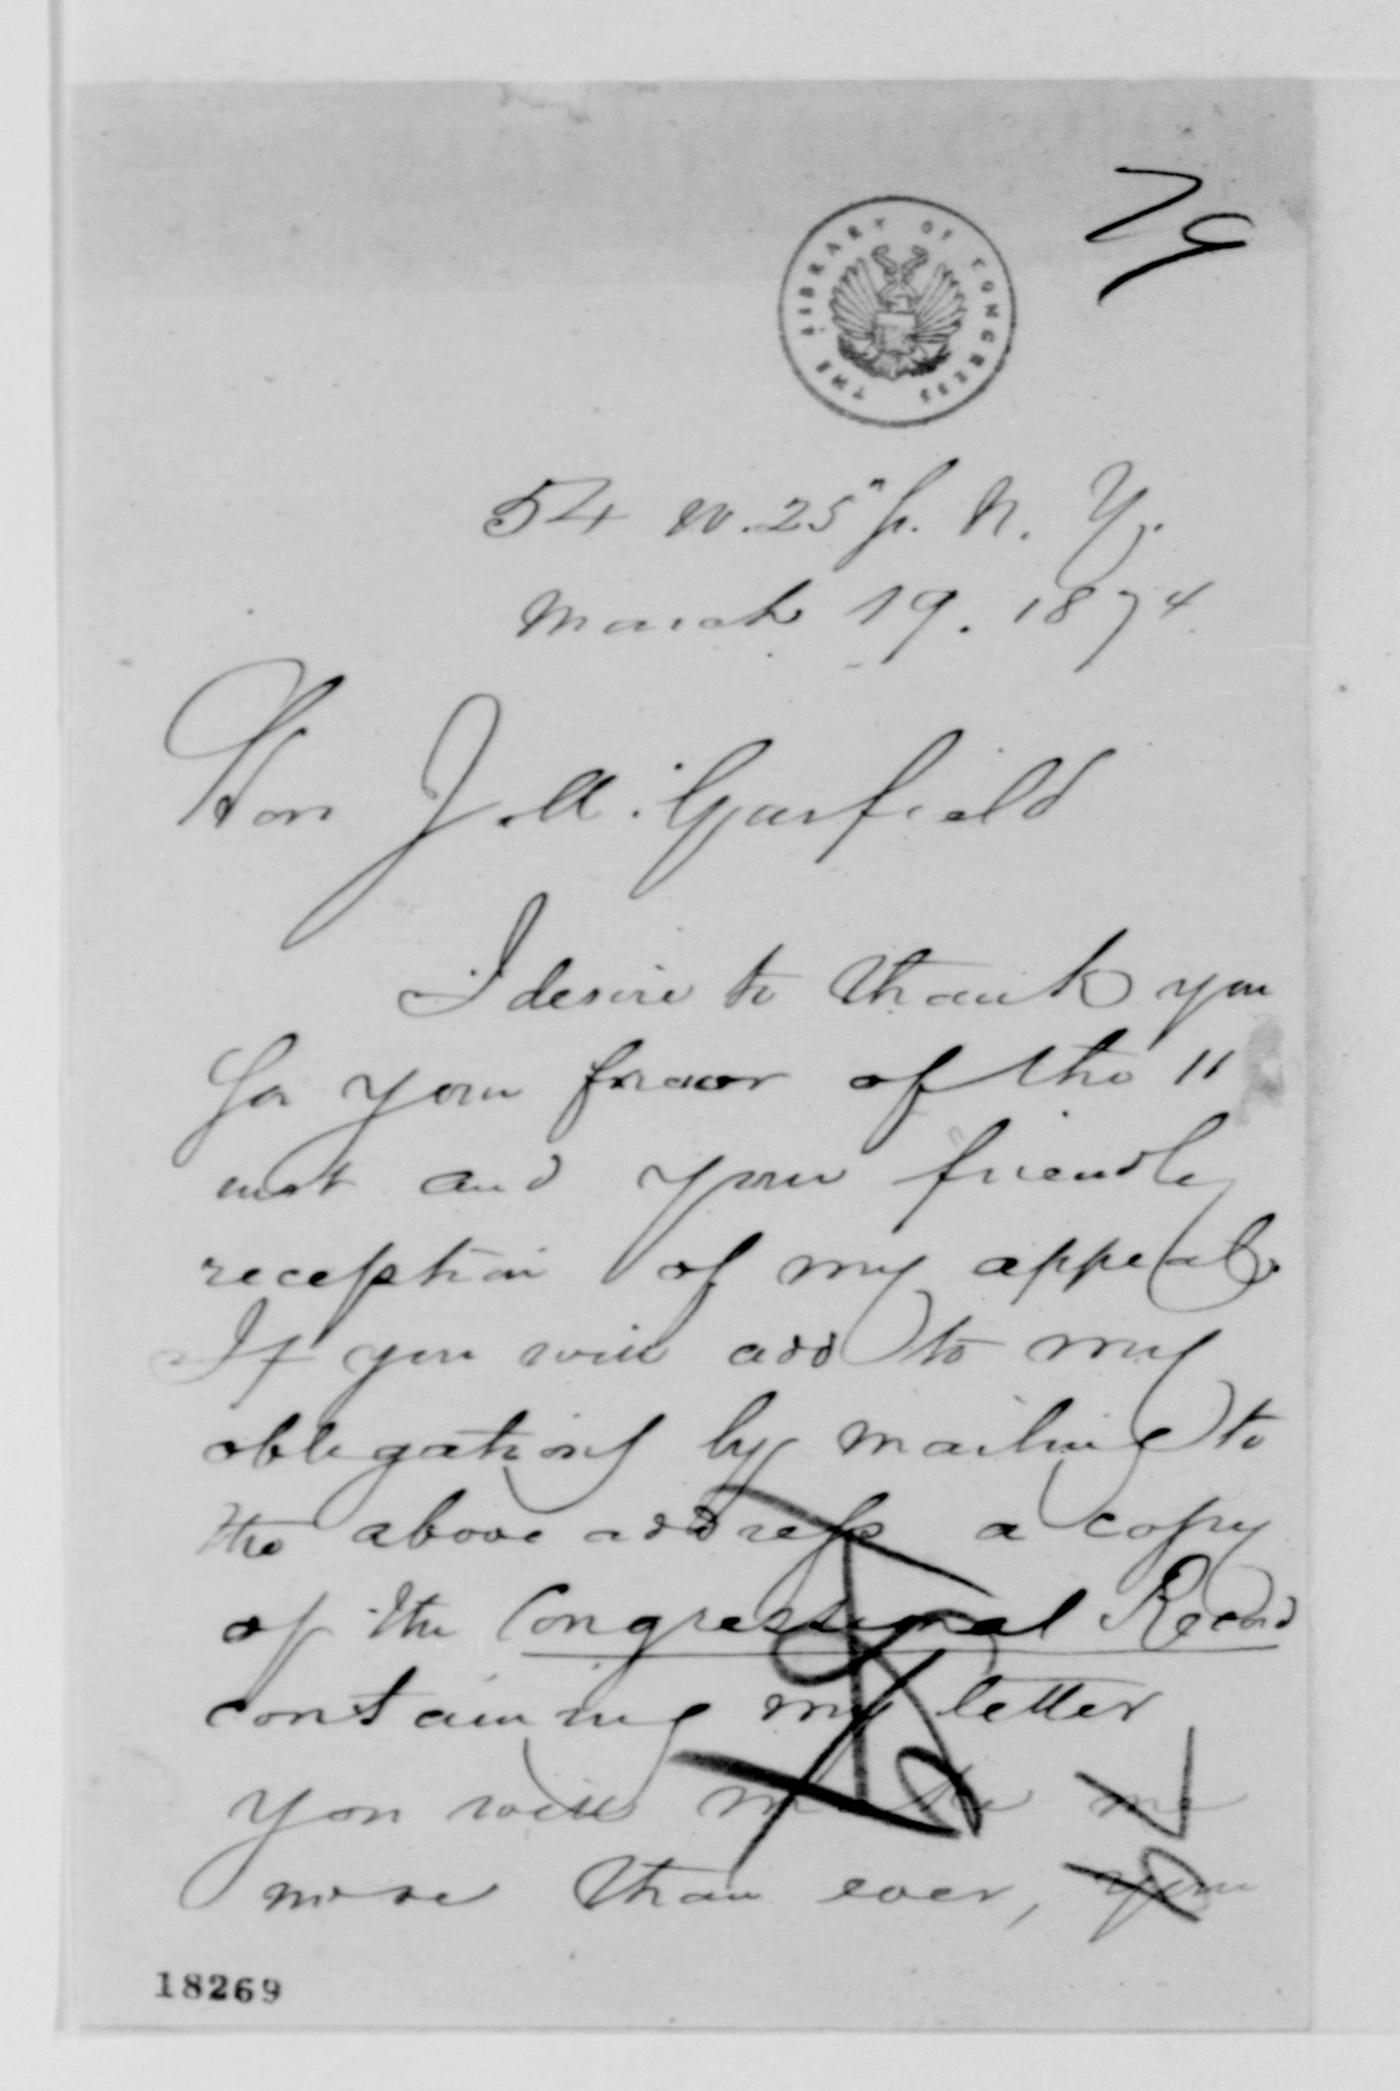 79
THE LIBRARY OF CONGRESS
54 W. 25" St. N. Y.
March 19. 1874
Hon J. A. Garfield
I desire to thank you
for your favor of the 11
inst and your friendly
reception of my appeal.
If you will add to my
obligations by mailing to
the above address a copy
of the Congressional Record
containing my letter
you will make me
more than ever, your
18269